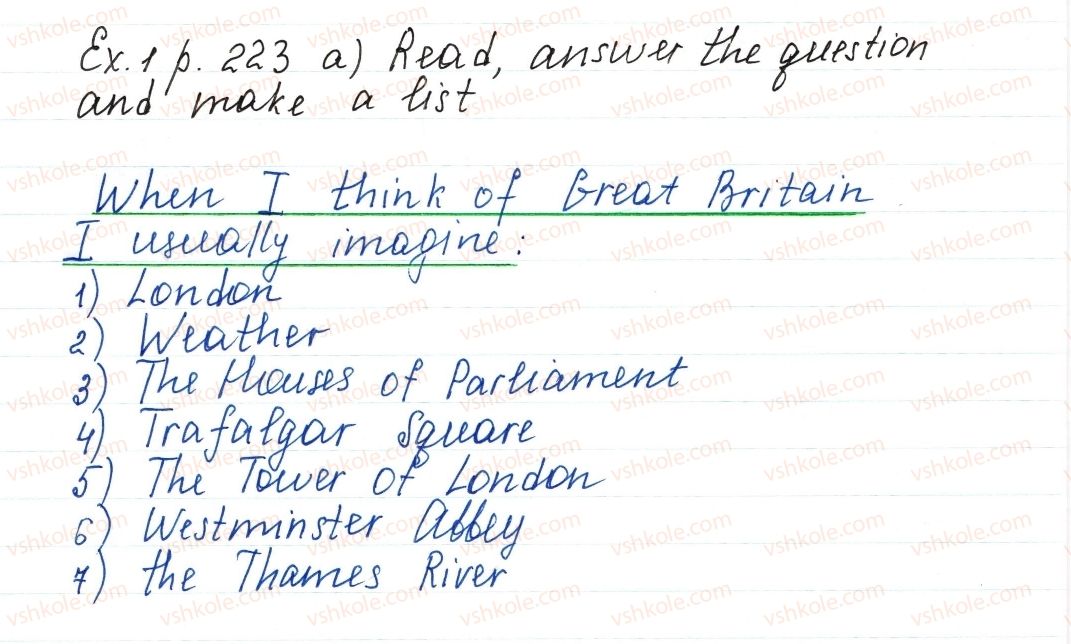 Ex. 1 p. 223 a) Read, answer the question
and make a list
When I think of Great Britain
I usually imagine:
1) London
2) Weather
3) The Houses of Parliament
4) Trafalgar Square
5) The Tower of London
6) Westminster Abbey
7) the Thames River
vshkole.com